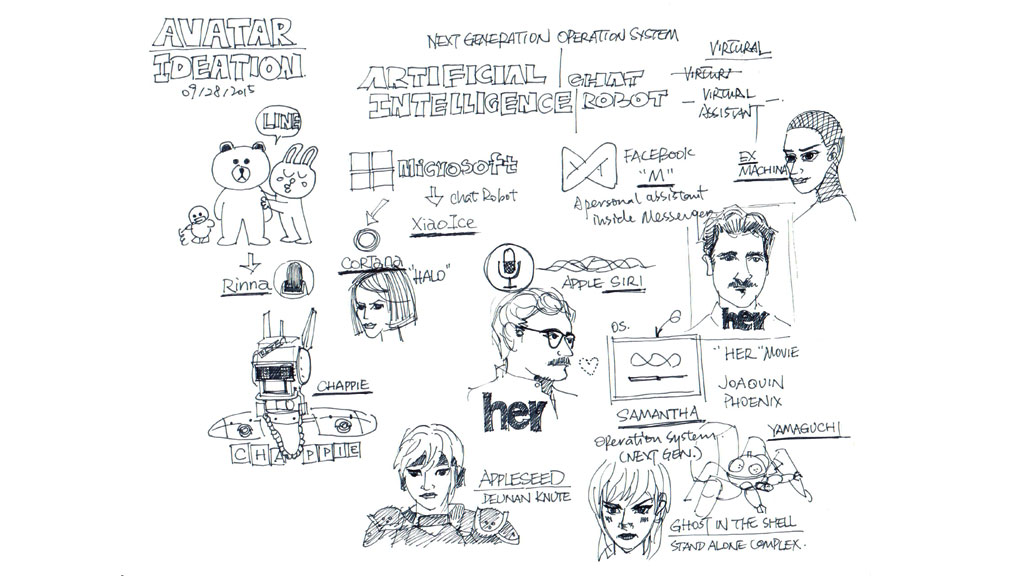 AVATAR
IDEATION
09/28/2015
NEXT GENERATION OPERATION SYSTEM
ARTIFICIAL
INTELLIGENCE
CHAT
ROBOT
VIRTURAL
VIRTURL
VIRTUAL
ASSISTANT
LINE
Rinna
Microsoft
chat Robot
XiaoIce
CORTANA
"HALO"
FACEBOOK
"M"
A personal assistant
inside Messenger
EX
MACHINA
APPLE SIRI
her
her
OS.
SAMANTHA
Operation System
(NEXT GEN.)
"HER" MOVIE
JOAQUIN
PHOENIX
CHAPPIE
CHAPPIE
APPLESEED
DEUNAN KNUTE
YAMAGUCHI
GHOST IN THE SHELL
STAND ALONE COMPLEX.